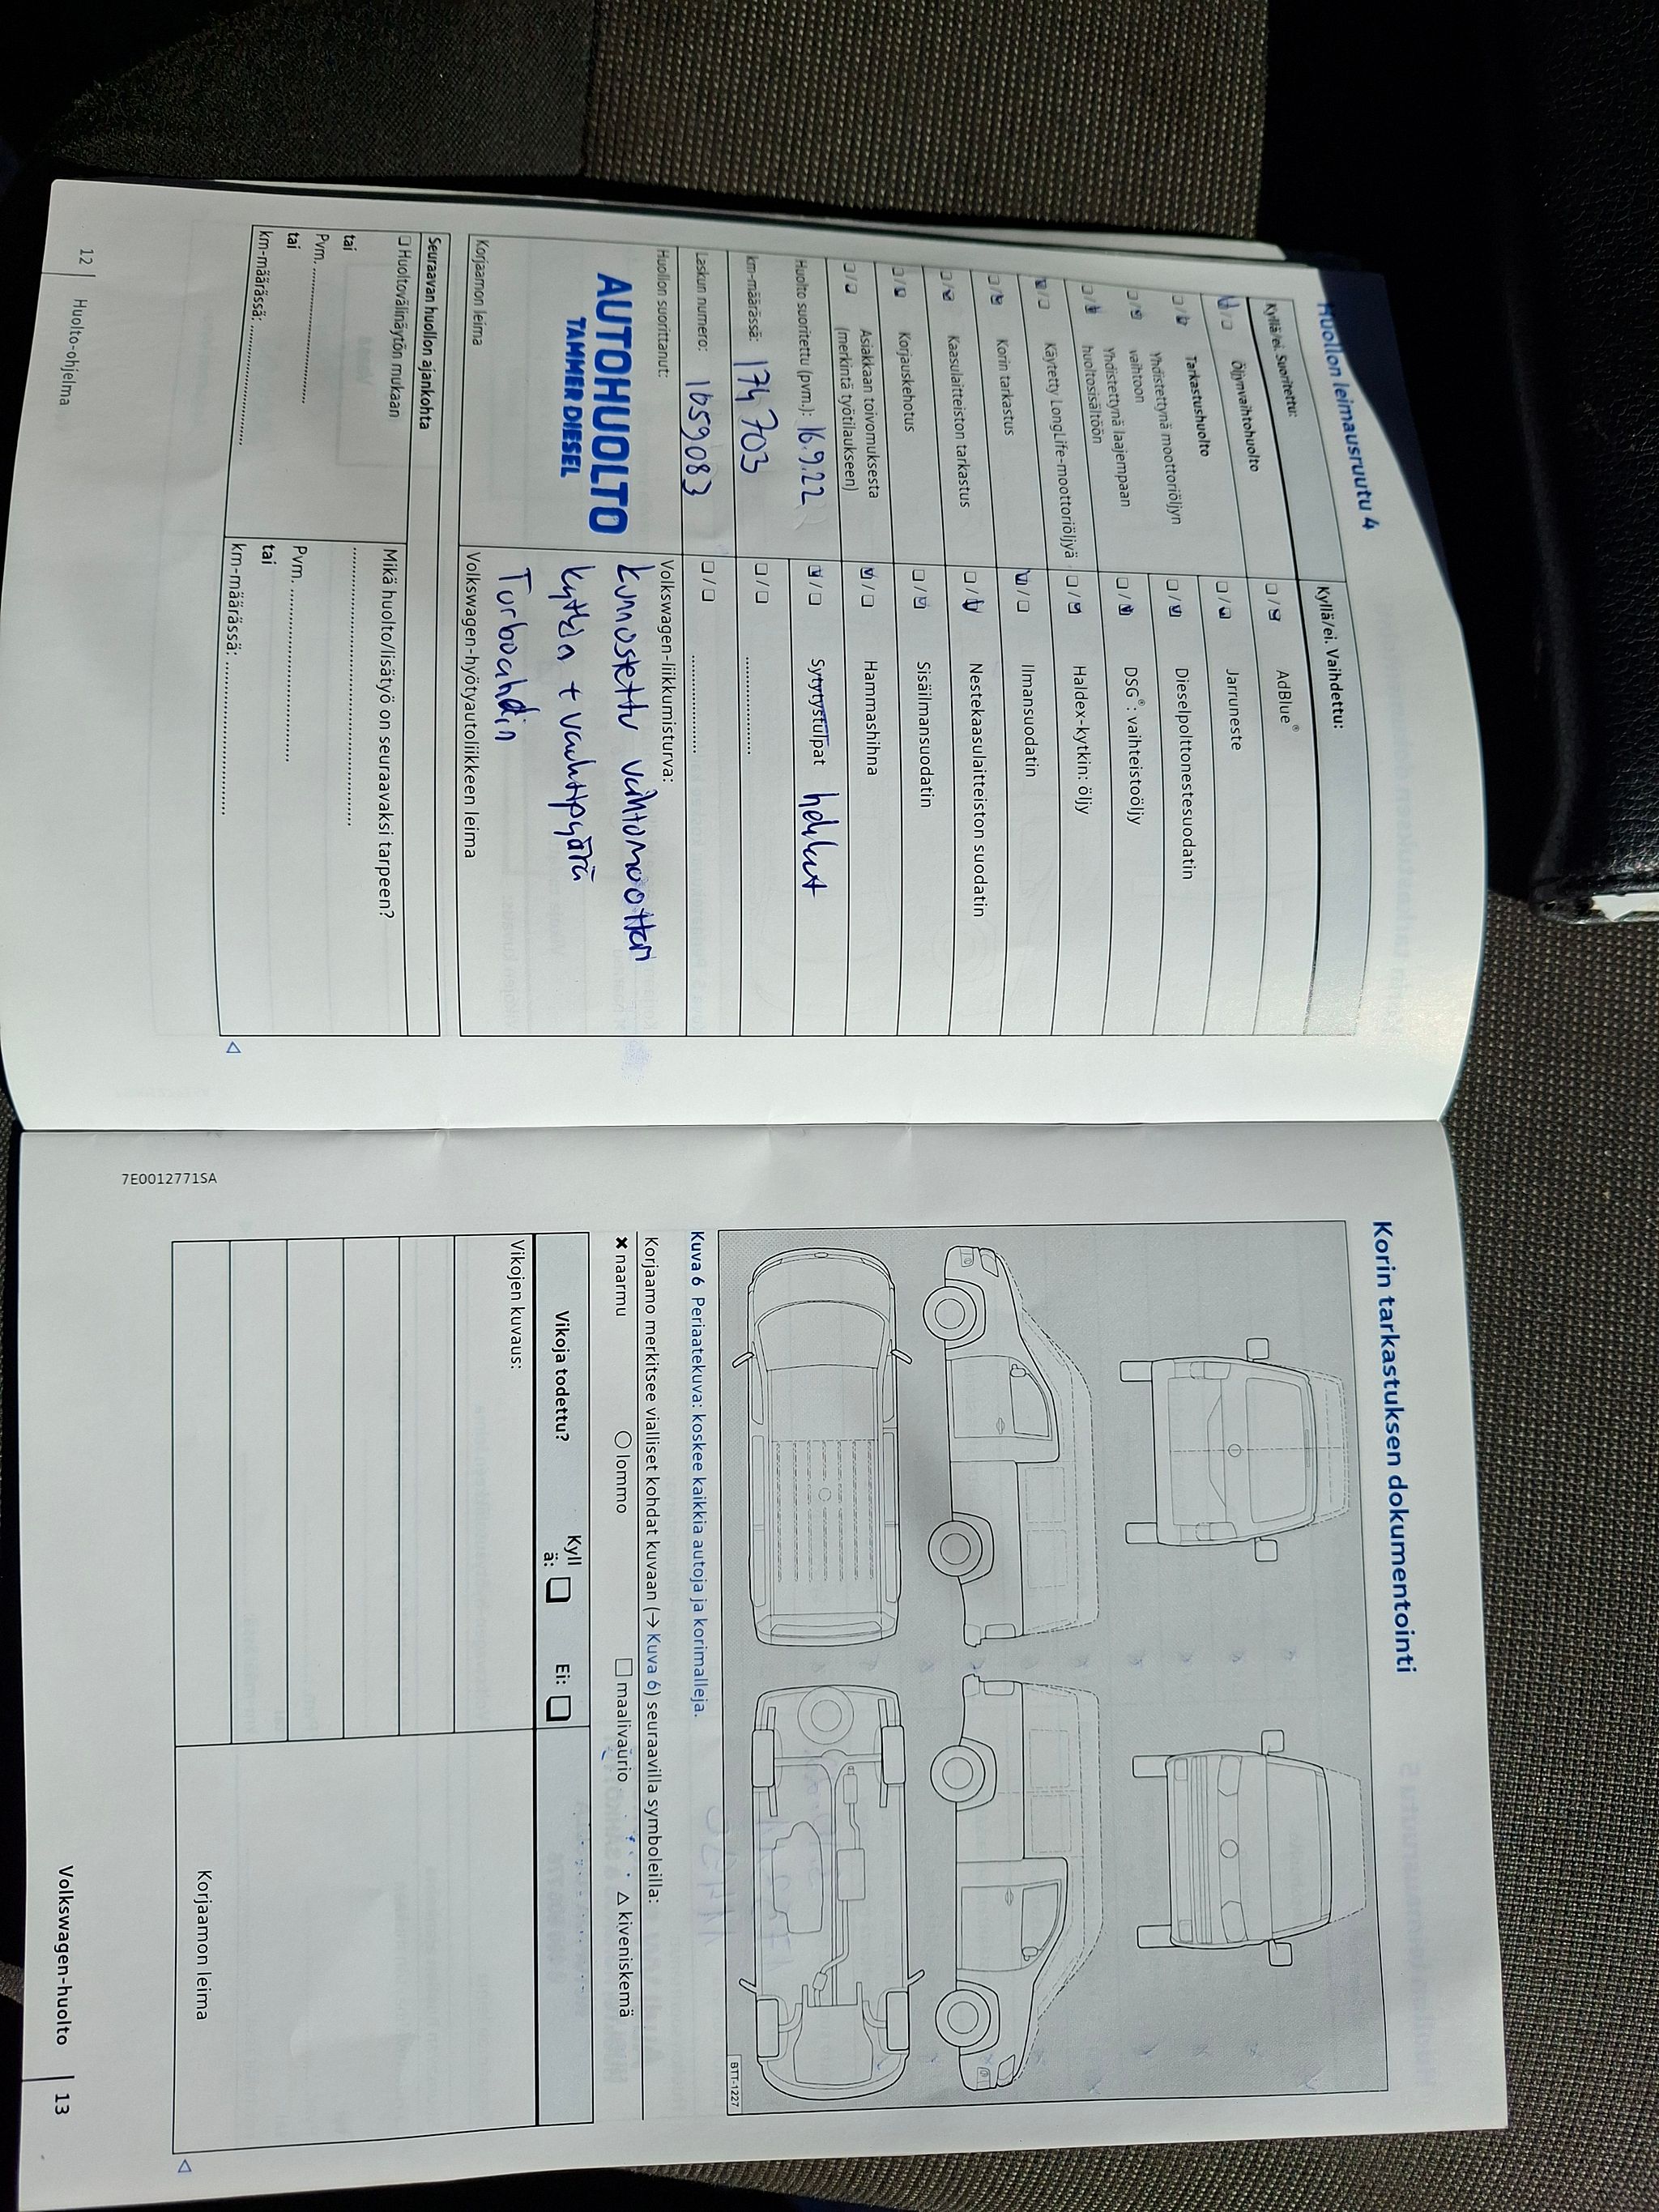 Huollon leimausruutu 4
Kyllä/ei. Suoritettu:
Öljynvaihtohuolto
Tarkastushuolto
Yhdistettynä moottoriöljyn
vaihtoon
Yhdistettynä laajempaan
huoltosisältöön
Käytetty LongLife-moottoriöljyä
Korin tarkastus
Kaasulaitteiston tarkastus
Korjauskehotus
Asiakkaan toivomuksesta
(merkintä työtilaukseen)
Huolto suoritettu (pvm.): 16.9.22
km-määrässä: 174 703
Laskun numero: 1059083
Huollon suorittanut:
AUTOHUOLTO
TAMMER DIESEL
Korjaamon leima
Kyllä/ei. Vaihdettu:
AdBlue®
Jarruneste
Dieselpolttonestesuodatin
DSG®: vaihteistoöljy
Haldex-kytkin: öljy
Ilmansuodatin
Nestekaasulaitteiston suodatin
Sisäilmansuodatin
Hammashihna
Sytytystulpat hehkut
Volkswagen-liikkumisturva:
kunnostettu vaihtomoottori
kytkin + vauhtipyörä
Turboahdin
Volkswagen-hyötyautoliikkeen leima
Seuraavan huollon ajankohta
Huoltovälinäytön mukaan
tai
Pvm.
tai
km-määrässä:
Mikä huolto/lisätyö on seuraavaksi tarpeen?
Pvm.
tai
km-määrässä:
12 | Huolto-ohjelma
Korin tarkastuksen dokumentointi
BTT-1227
Kuva 6 Periaatekuva: koskee kaikkia autoja ja korimalleja.
Korjaamo merkitsee vialliset kohdat kuvaan (→ Kuva 6) seuraavilla symboleilla:
✖ naarmu ○ lommo □ maalivaurio △ kiveniskemä
Vikoja todettu? Kyll
ä: Ei:
Vikojen kuvaus:
Korjaamon leima
7E0012771SA
Volkswagen-huolto | 13